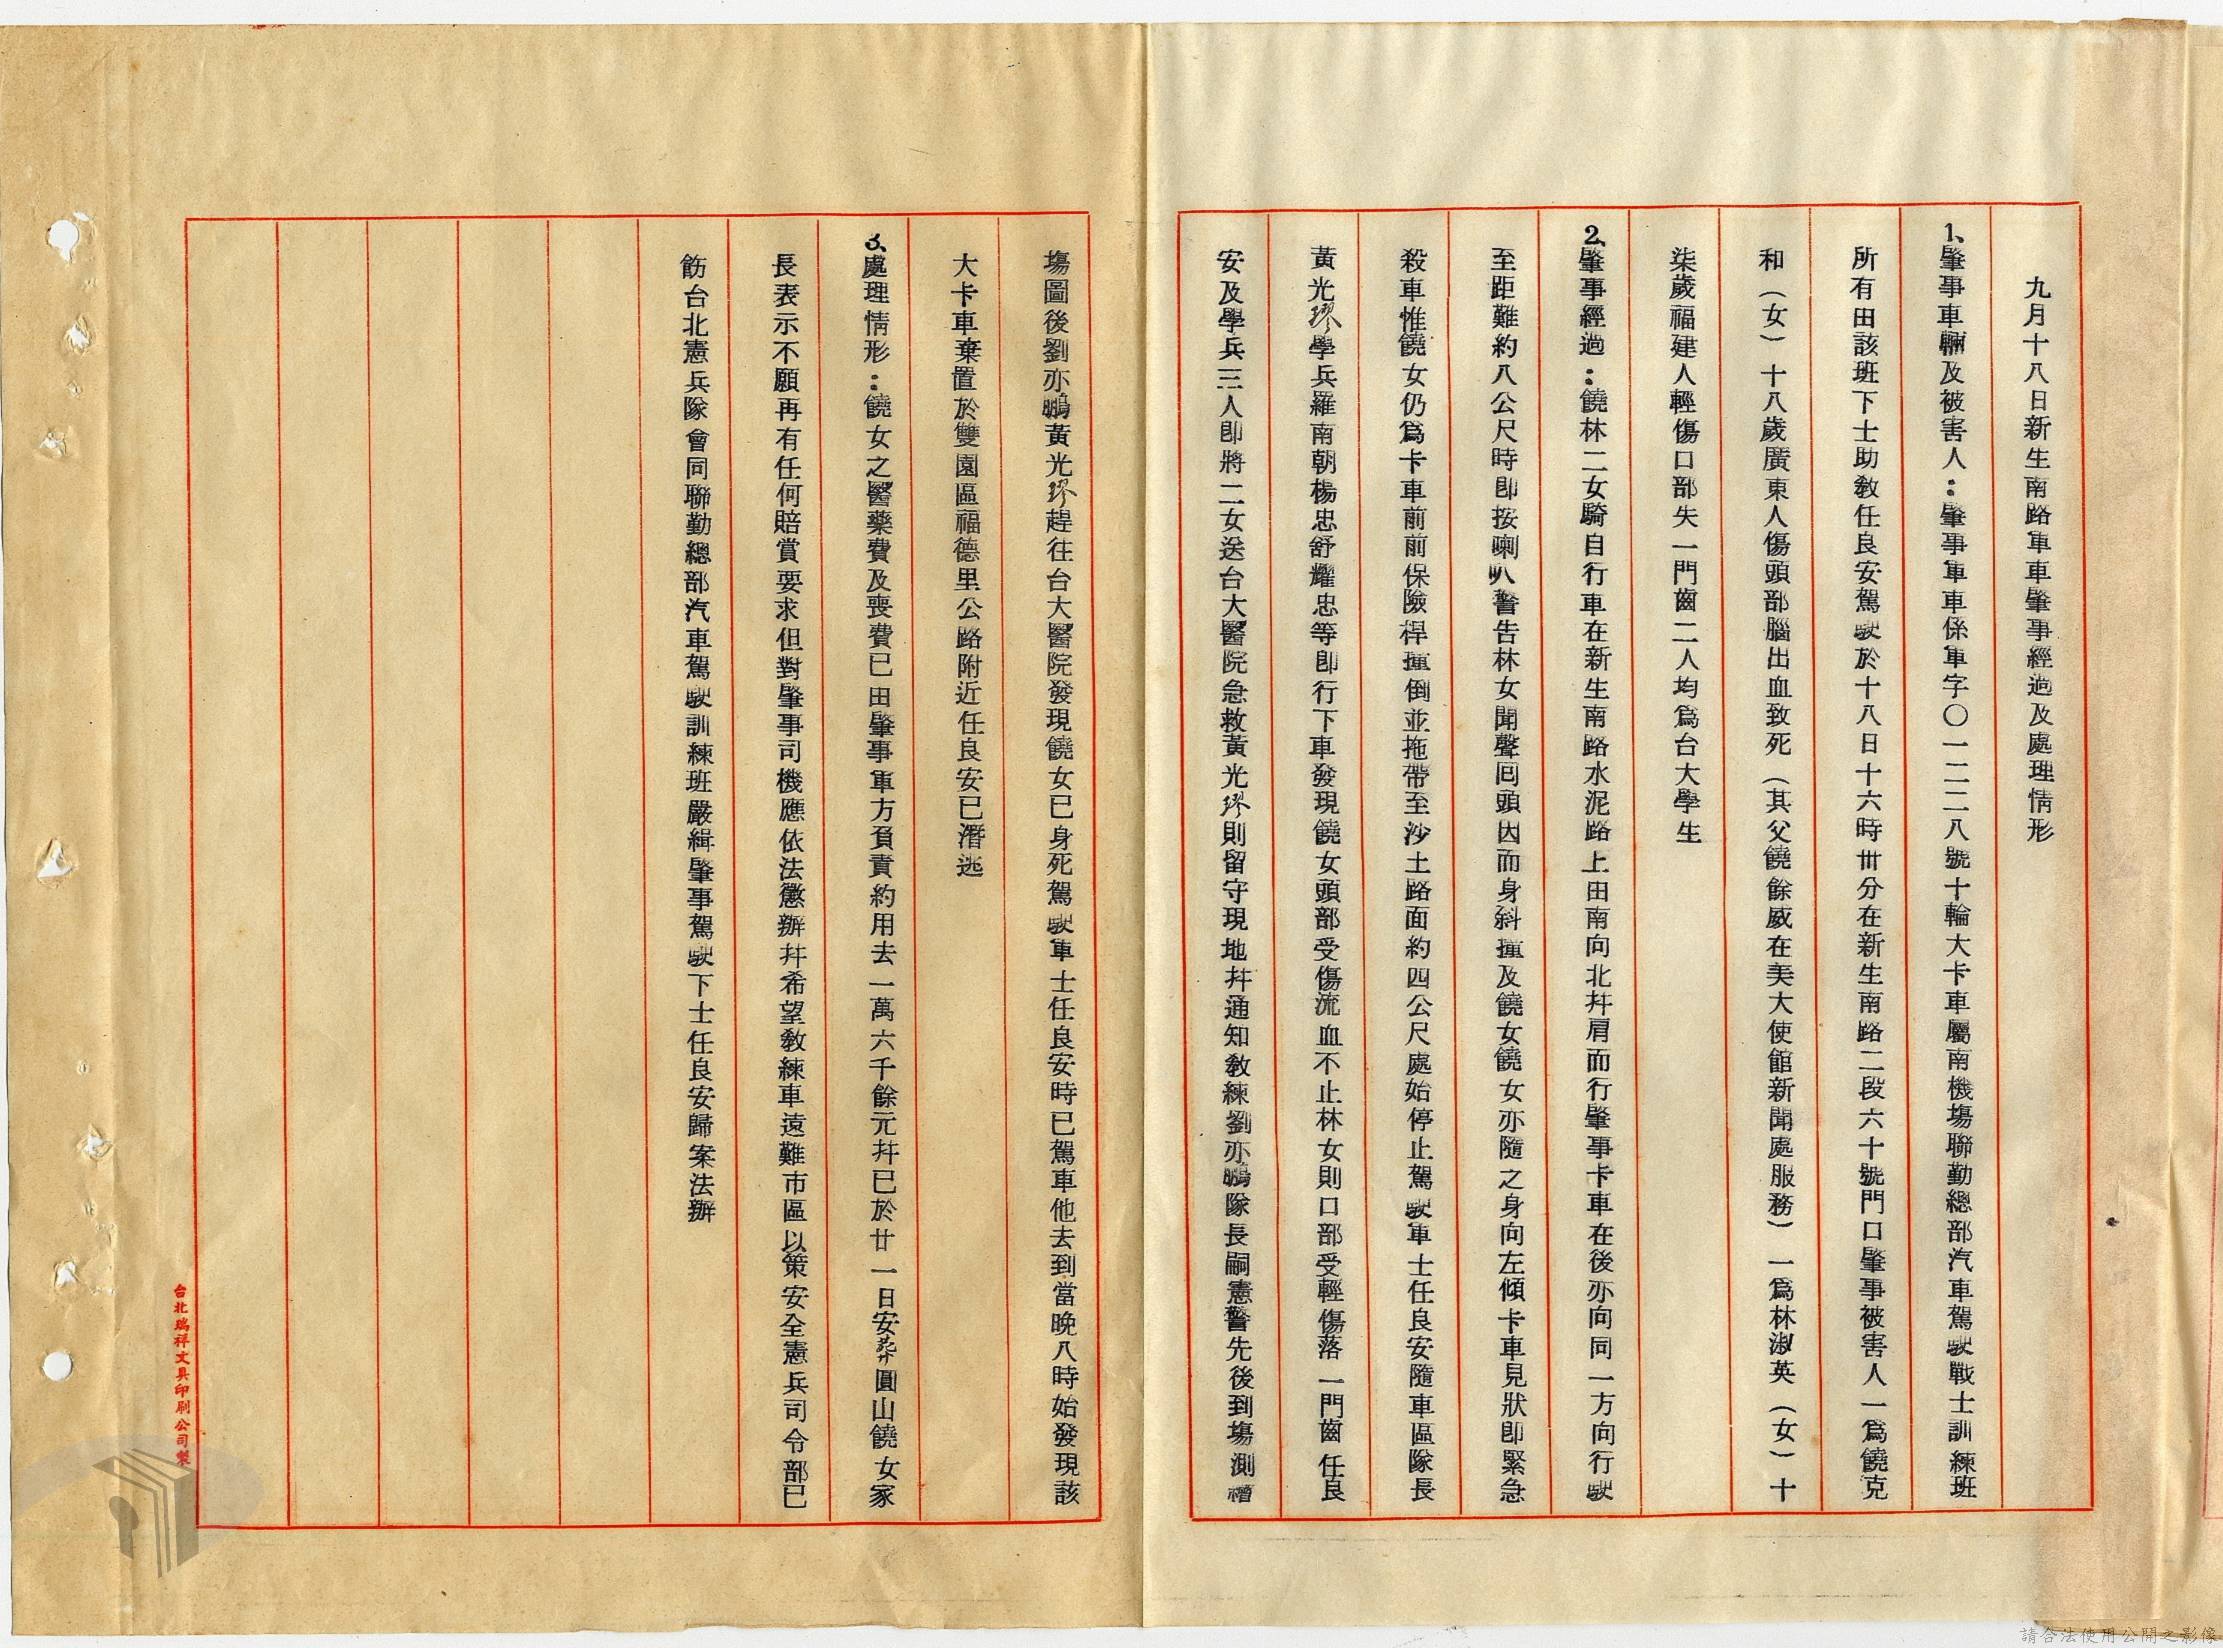 九月十八日新生南路軍車肇事經過及處理情形
1、肇事車輛及被害人：肇事軍車係軍字〇一二二八號十輪大卡車屬南機場聯勤總部汽車駕駛戰士訓練班
所有由該班下士助教任良安駕駛於十八日十六時卅分在新生南路二段六十號門口肇事被害人一為饒克
和（女）十八歲廣東人傷頭部腦出血致死（其父饒餘威在美大使館新聞處服務）一為林淑英（女）十
柒歲福建人輕傷口部失一門齒二人均為台大學生
2、肇事經過：饒林二女騎自行車在新生南路水泥路上由南向北幷肩而行肇事卡車在後亦向同一方向行駛
至距離約八公尺時卽按喇叭警告林女聞聲囘頭因而身斜撞及饒女饒女亦隨之身向左傾卡車見狀卽緊急
殺車惟饒女仍為卡車前前保險桿撞倒並拖帶至沙土路面約四公尺處始停止駕駛軍士任良安隨車區隊長
黃光璆學兵羅南朝楊忠舒耀忠等卽行下車發現饒女頭部受傷流血不止林女則口部受輕傷落一門齒任良
安及學兵三人卽將二女送台大醫院急救黃光璆則留守現地幷通知教練劉亦鵬隊長嗣憲警先後到場測
場圖後劉亦鵬黃光璆趕往台大醫院發現饒女已身死駕駛軍士任良安時已駕車他去到當晚八時始發現該
大卡車棄置於雙園區福德里公路附近任良安已潛逃
3、處理情形：饒女之醫藥費及喪費已由肇事軍方負責約用去一萬六千餘元幷已於廿一日安葬圓山饒女家
長表示不願再有任何賠賞要求但對肇事司機應依法懲辦幷希望教練車遠離市區以策安全憲兵司令部已
飭台北憲兵隊會同聯勤總部汽車駕駛訓練班嚴緝肇事駕駛下士任良安歸案法辦
台北瑞祥文具印刷公司製
請合法使用公開之影像